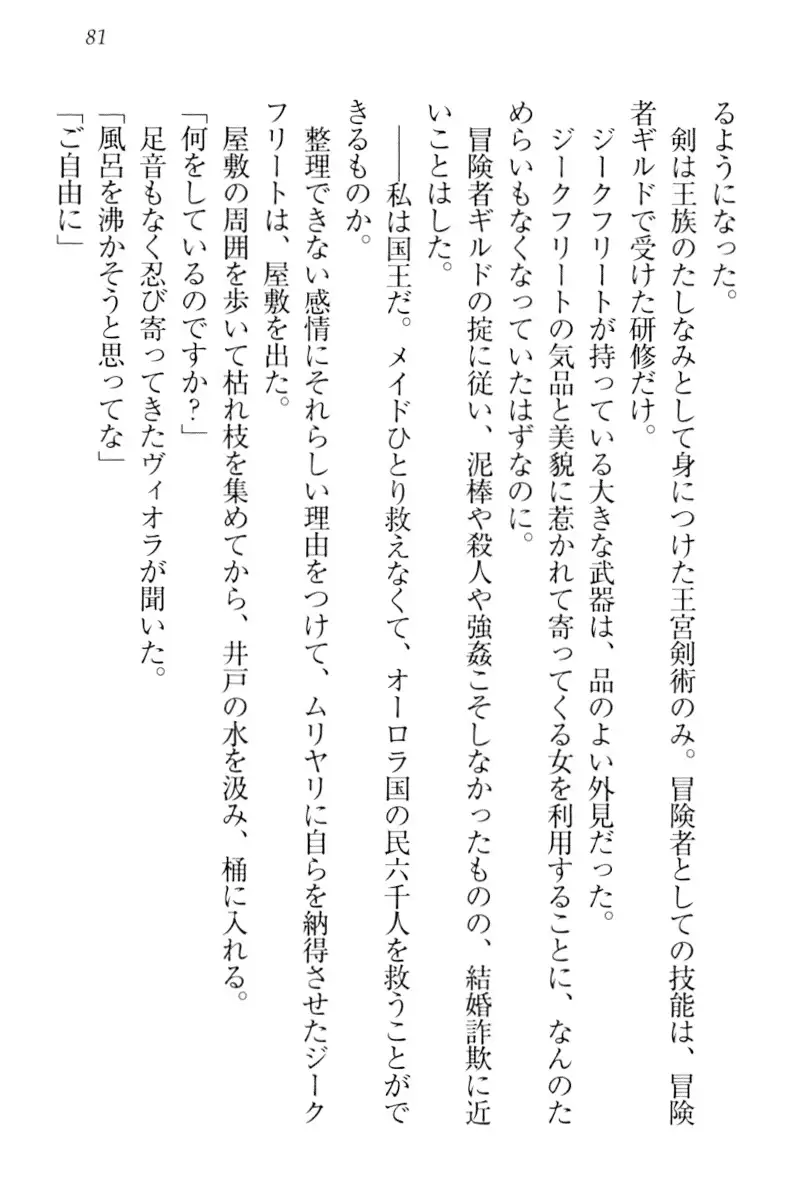 81
るようになった。
剣は王族のたしなみとして身につけた王宮剣術のみ。冒険者としての技能は、冒険
者ギルドで受けた研修だけ。
ジークフリートが持っている大きな武器は、品のよい外見だった。
ジークフリートの気品と美貌に惹かれて寄ってくる女を利用することに、なんのた
めらいもなくなっていたはずなのに。
冒険者ギルドの掟に従い、泥棒や殺人や強姦こそしなかったものの、結婚詐欺に近
いことはした。
――私は国王だ。メイドひとり救えなくて、オーロラ国の民六千人を救うことがで
きるものか。
整理できない感情にそれらしい理由をつけて、ムリヤリに自らを納得させたジーク
フリートは、屋敷を出た。
屋敷の周囲を歩いて枯れ枝を集めてから、井戸の水を汲み、桶に入れる。
「何をしているのですか？」
足音もなく忍び寄ってきたヴィオラが聞いた。
「風呂を沸かそうと思ってな」
「ご自由に」